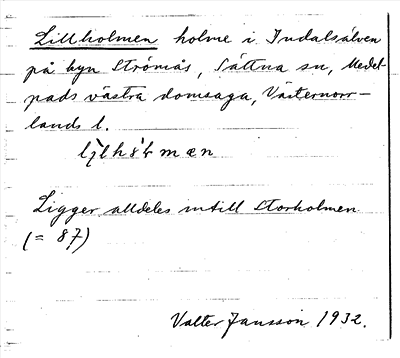 Lillholmen holme i Indalsälven
på byn Strömås, Sättna sn, Medel-
pads västra domsaga, Västernorr-
lands l.
Ligger alldeles intill Storholmen
(= 87)
Valter Jansson 1932.